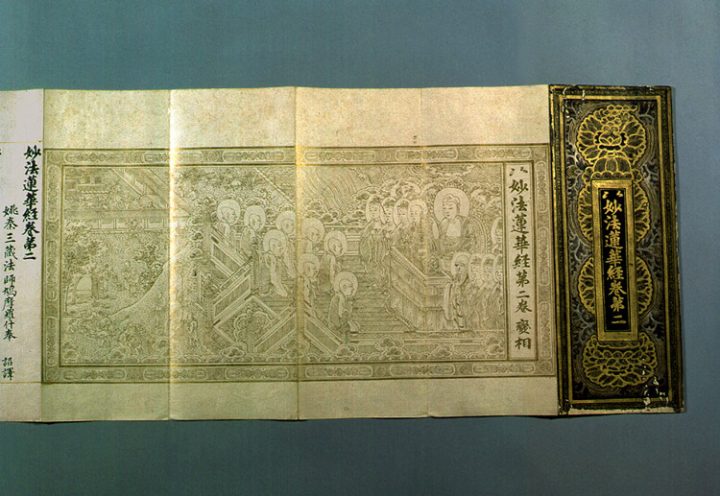 妙法蓮華経卷第二
妙法蓮華経第二卷 變相
妙法蓮華経卷第二
姚秦三藏法師鳩摩羅什奉 詔譯